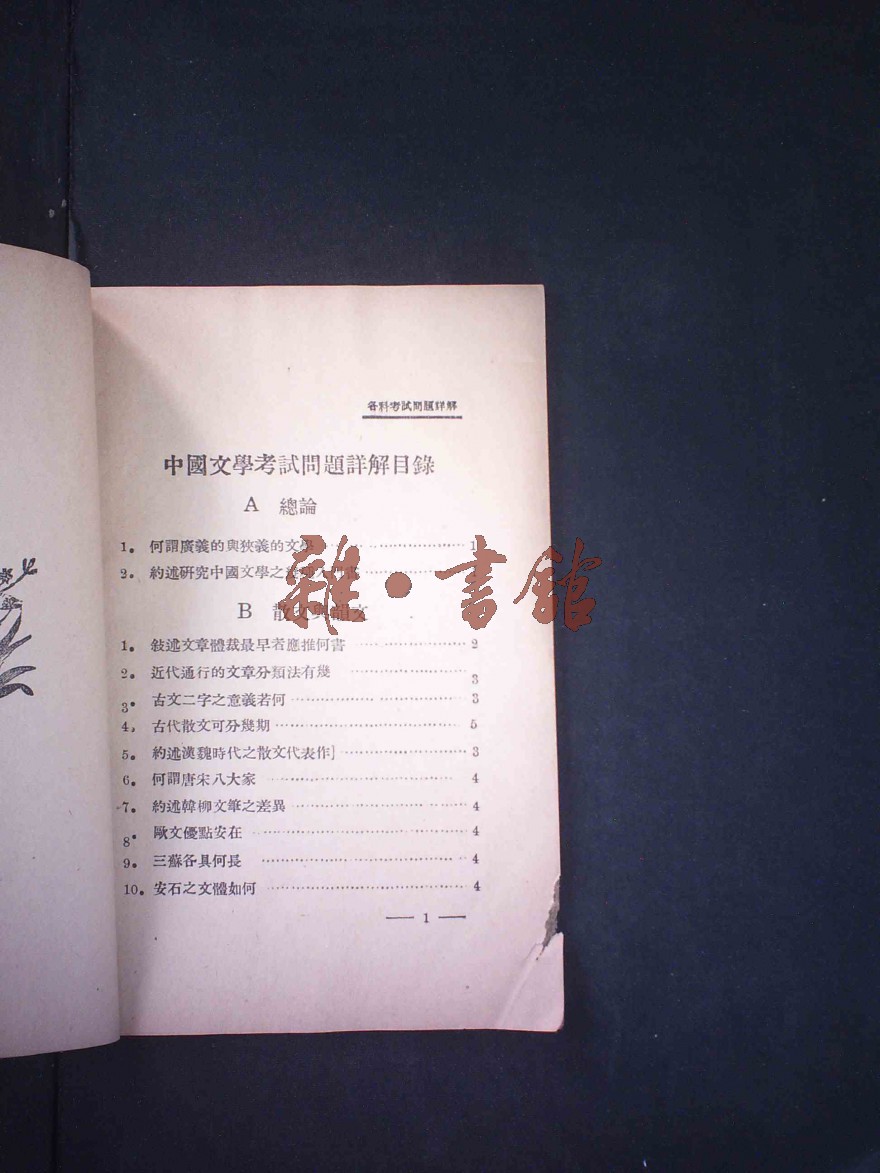 各科考試問題詳解
中國文學考試問題詳解目錄
A 總論
1. 何謂廣義的與狹義的文學 ……………… 1
2. 約述研究中國文學之 ………………
雜・書館
B 散文與韻文
1. 敍述文章體裁最早者應推何書 ……………… 2
2. 近代通行的文章分類法有幾 ……………… 3
3. 古文二字之意義若何 ……………… 3
4. 古代散文可分幾期 ……………… 5
5. 約述漢魏時代之散文代表作] ……………… 3
6. 何謂唐宋八大家 ……………… 4
7. 約述韓柳文筆之差異 ……………… 4
8. 歐文優點安在 ……………… 4
9. 三蘇各具何長 ……………… 4
10. 安石之文體如何 ……………… 4
— 1 —